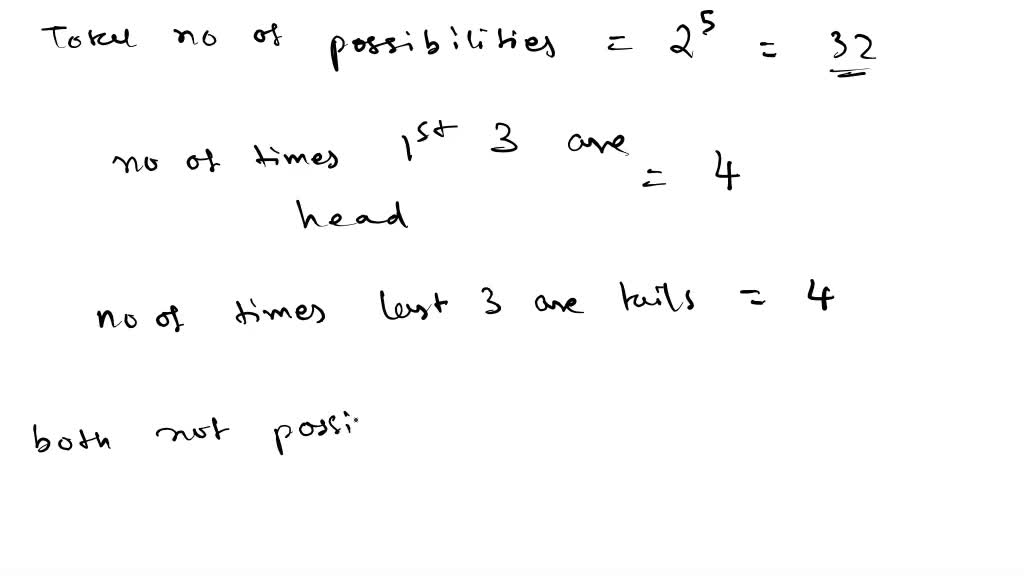 Total no of possibilities = 2⁵ = 32
no of times 1st 3 are = 4
head
no of times last 3 are tails = 4
both not possi